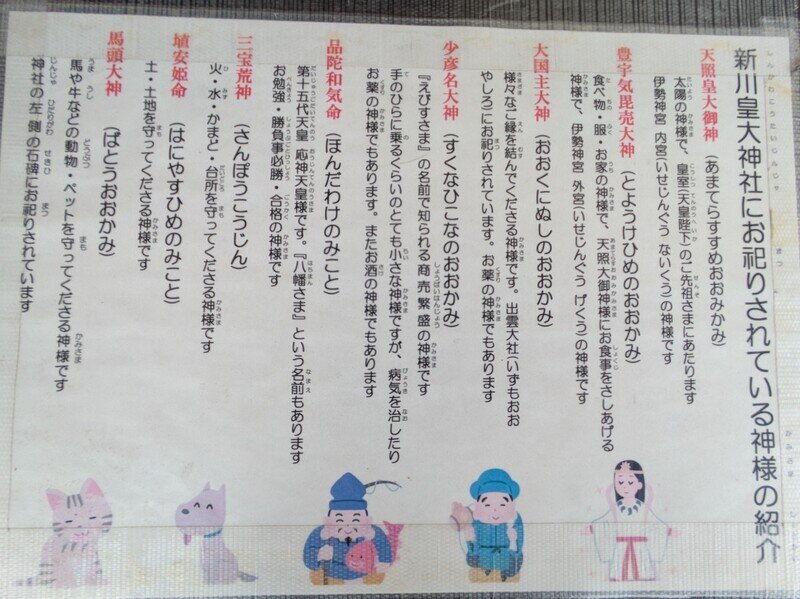 新川皇大神社にお祀りされている神様の紹介
天照皇大御神（あまてらすすめおおみかみ）
太陽の神様で、皇室（天皇陛下）のご先祖さまにあたります
伊勢神宮 内宮（いせじんぐう ないくう）の神様です
豊宇気毘売大神（とようけひめのおおかみ）
食べ物・服・お家の神様で、天照大御神様にお食事をさしあげる
神様で、伊勢神宮 外宮（いせじんぐう げくう）の神様です
大国主大神（おおくにぬしのおおかみ）
様々なご縁を結んでくださる神様です。出雲大社（いずもおお
やしろ）にお祀りされています。お薬の神様でもあります
少彦名大神（すくなひこなのおおかみ）
『えびすさま』の名前で知られる商売繁盛の神様です
手のひらに乗るくらいのとても小さな神様ですが、病気を治したり
お薬の神様でもあります。またお酒の神様でもあります
品陀和気命（ほんだわけのみこと）
第十五代天皇 応神天皇様です。『八幡さま』という名前もあります
お勉強・勝負事必勝・合格の神様です
三宝荒神（さんぽうこうじん）
火・水・かまど・台所を守ってくださる神様です
埴安姫命（はにやすひめのみこと）
土・土地を守ってくださる神様です
馬頭大神（ばとうおおかみ）
馬や牛などの動物・ペットを守ってくださる神様です
神社の左側の石碑にお祀りされています